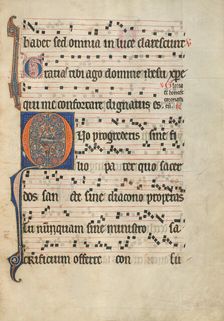 habet sed omnia in luce clarescunt
Gratia tibi ago domine iesu xpe
qui me confortare dignatus es
Quo progrederis sine fi
lio pa ter quo sacer
dos san cte sine diacono properas
tu nunquam sine ministro sa
crificium offerre con sue